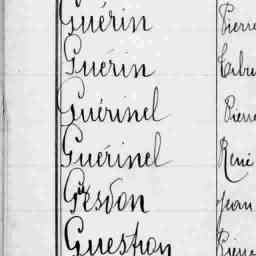 Guérin Pierre
Guérin
Guérinel Pierre
Guérinel René
Gesdon Jean
Guestron Pierre